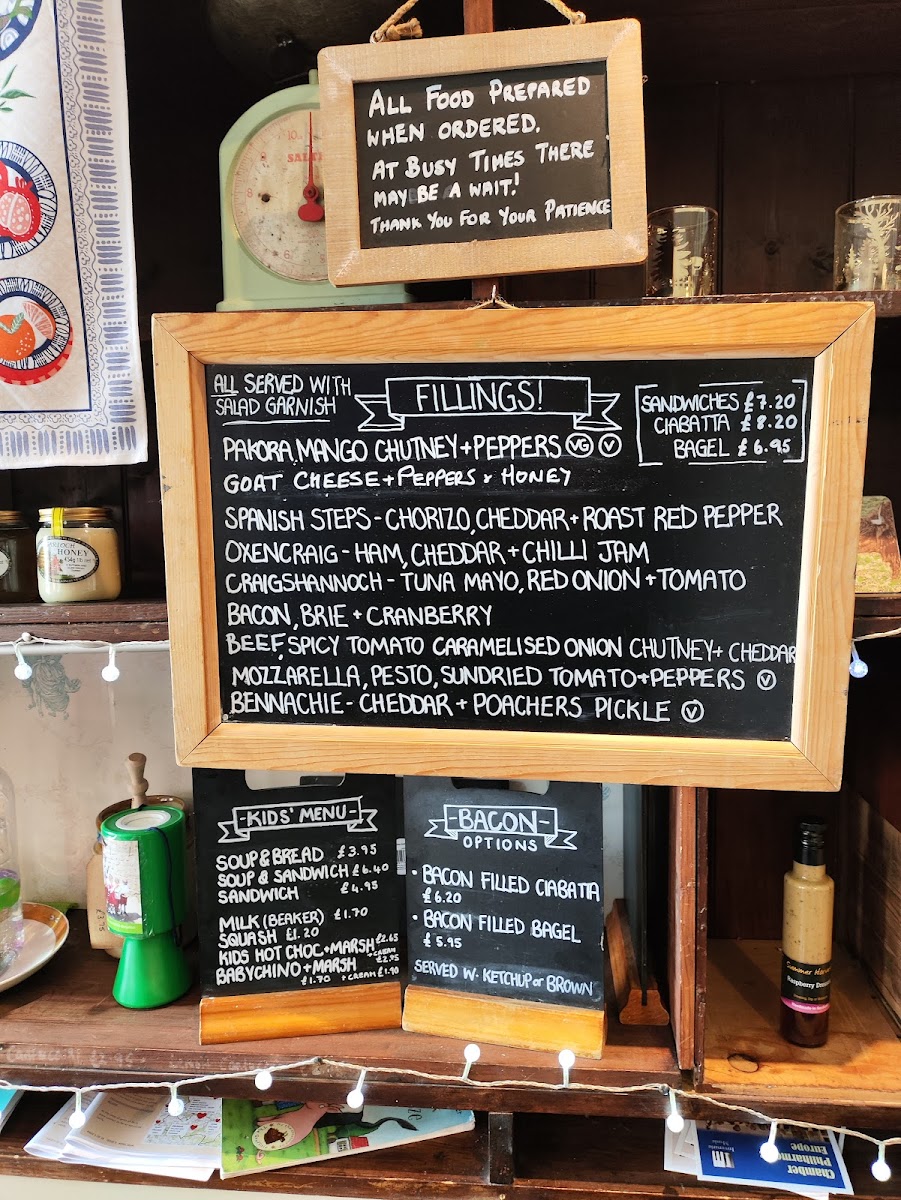 ALL FOOD PREPARED
WHEN ORDERED.
AT BUSY TIMES THERE
MAY BE A WAIT!
THANK YOU FOR YOUR PATIENCE
10
SALT
ALL SERVED WITH
SALAD GARNISH
FILLINGS!
SANDWICHES £7.20
CIABATTA £8.20
BAGEL £6.95
PAKORA, MANGO CHUTNEY + PEPPERS VG V
GOAT CHEESE + PEPPERS & HONEY
SPANISH STEPS - CHORIZO, CHEDDAR + ROAST RED PEPPER
OXENCRAIG - HAM, CHEDDAR + CHILLI JAM
CRAIGSHANNOCH - TUNA MAYO, RED ONION + TOMATO
BACON, BRIE + CRANBERRY
BEEF, SPICY TOMATO CARAMELISED ONION CHUTNEY + CHEDDAR
MOZZARELLA, PESTO, SUNDRIED TOMATO + PEPPERS V
BENNACHIE - CHEDDAR + POACHERS PICKLE V
HONEY
454g
-KIDS' MENU-
SOUP & BREAD £3.95
SOUP & SANDWICH £6.40
SANDWICH £4.95
MILK (BEAKER) £1.70
SQUASH £1.20
KIDS HOT CHOC + MARSH £2.65
+ CREAM £2.95
BABYCHINO + MARSH
£1.70 + CREAM £1.90
-BACON-
OPTIONS
• BACON FILLED CIABATTA
£6.20
• BACON FILLED BAGEL
£5.95
SERVED W. KETCHUP or BROWN
Summer
Raspberry
Chamber
Philharmo
Europe